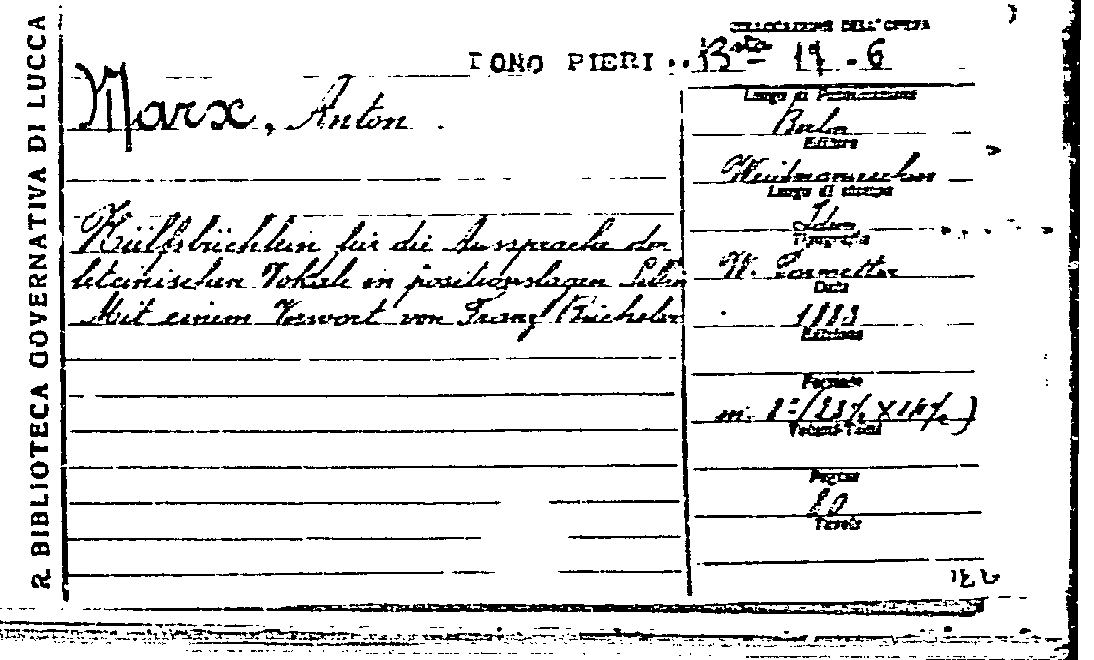 R. BIBLIOTECA GOVERNATIVA DI LUCCA
COLLOCAZIONE DELL'OPERA
DONO PIERI .. B.ta 19 . 6
Marx, Anton .
Hülfsbüchlein für die Aussprache der
lateinischen Vokale in positionslagen Silben
Mit einem Vorwort von Franz Bücheler
Luogo di Pubblicazione
Berlin
Editore
Weidmannschen
Luogo di stampa
Id.
Tipografia
W.
Data
1883
Edizione
Formato
in. 8° (23½ X 14½)
Volumi-Tomi
Pagine
80
Tavole